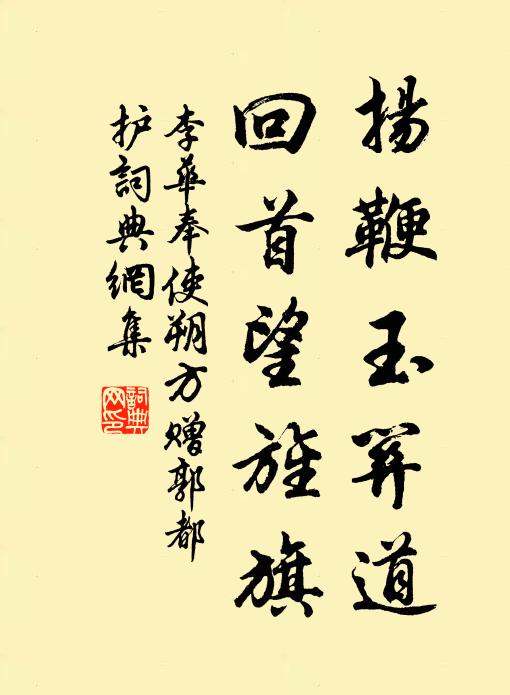 揚鞭玉關道
回首望旌旗
李華奉使朔方贈郭都
护詞典網集
詞典
网印